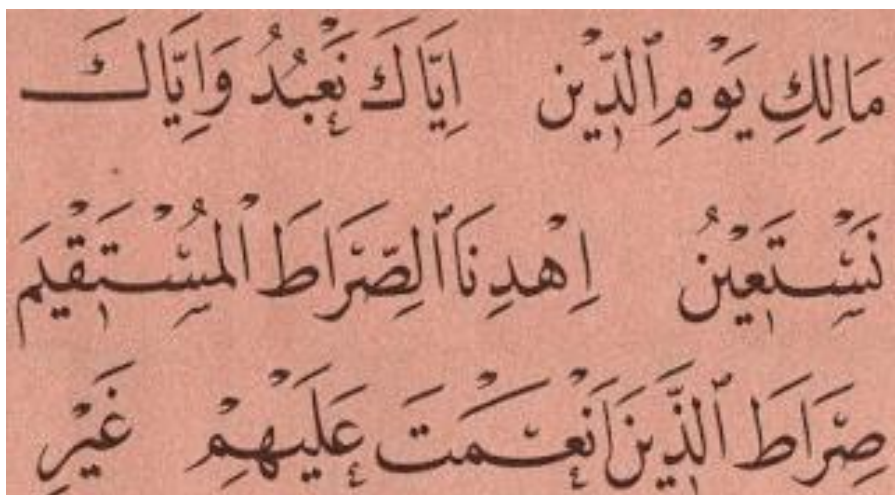 مَالِكِ يَوْمِ ٱلدِّيْنِ اِيَّاكَ نَعْبُدُ وَاِيَّاكَ
نَسْتَعِيْنُ اِهْدِنَا ٱلصِّرَاطَ ٱلْمُسْتَقِيْمَ
صِرَاطَ ٱلَّذِيْنَ اَنْعَمْتَ عَلَيْهِمْ غَيْرِ